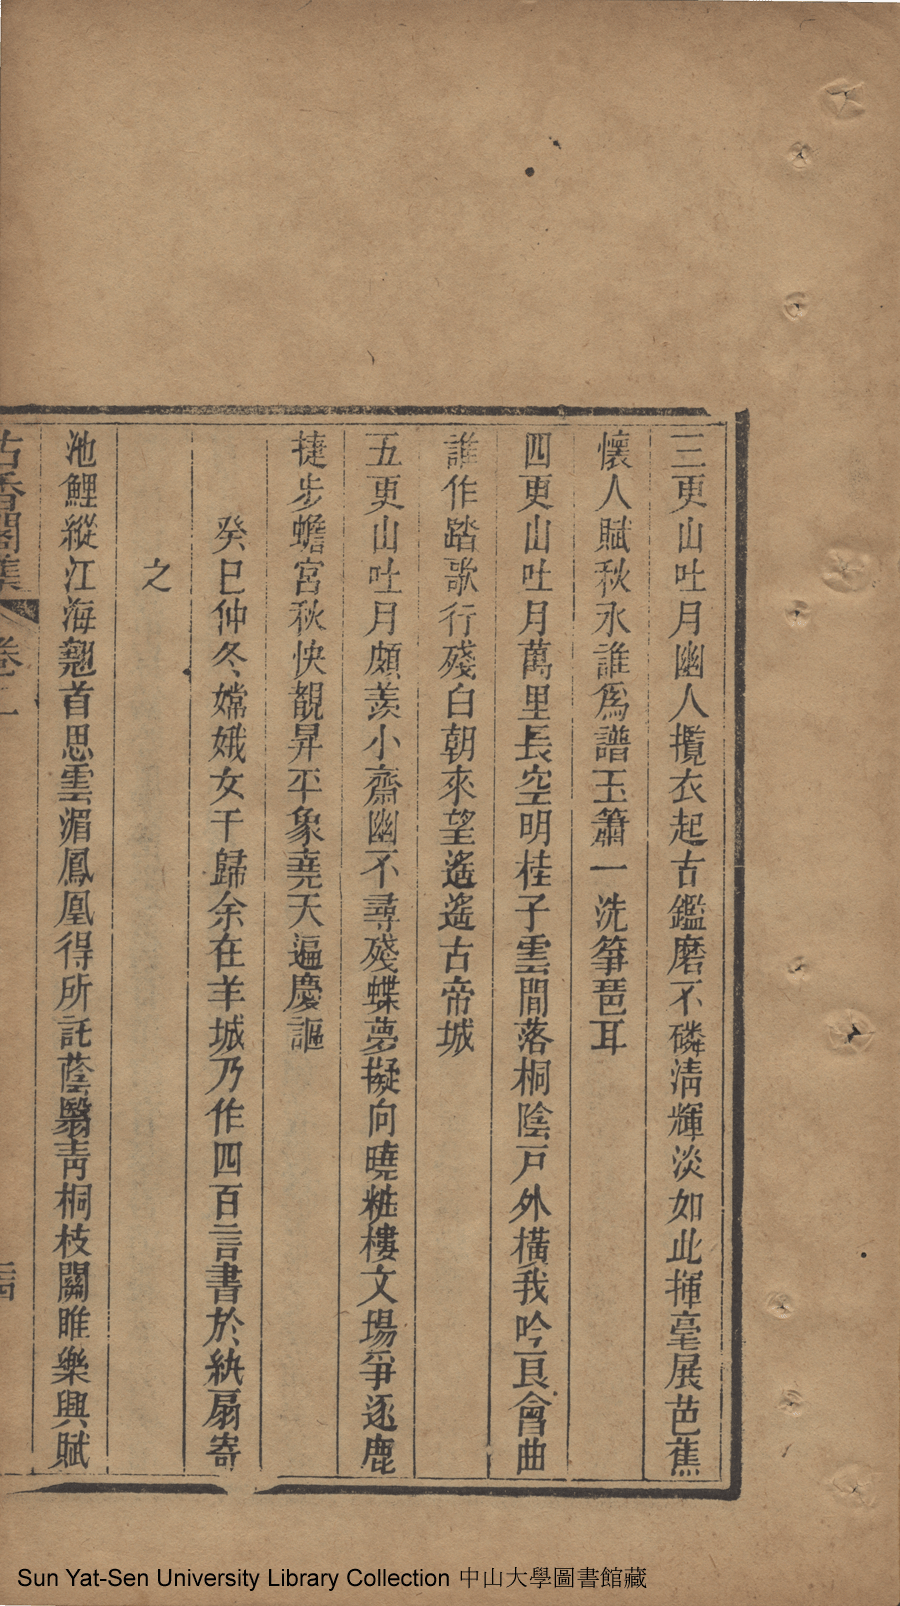 三更山吐月幽人攬衣起古鑑磨不磷清輝淡如此揮毫展芭蕉
懷人賦秋水誰爲譜玉簫一洗箏琶耳
四更山吐月萬里長空明桂子雲間落桐陰戸外橫我吟艮會曲
誰作踏歌行殘白朝來望遙遙古帝城
五更山吐月頗羨小齋幽不尋殘蝶夢擬向曉粧樓文場爭逐鹿
捷步蟾宮秋快覩昇平象堯天遍慶謳
癸巳仲冬嫦娥女于歸余在羊城乃作四百言書於紈扇寄
之
池鯉縱江海翹首思雲湄鳳凰得所託蔭翳靑桐枝關雎樂興賦
古香閣集 卷二 二四
Sun Yat-Sen University Library Collection 中山大學圖書館藏